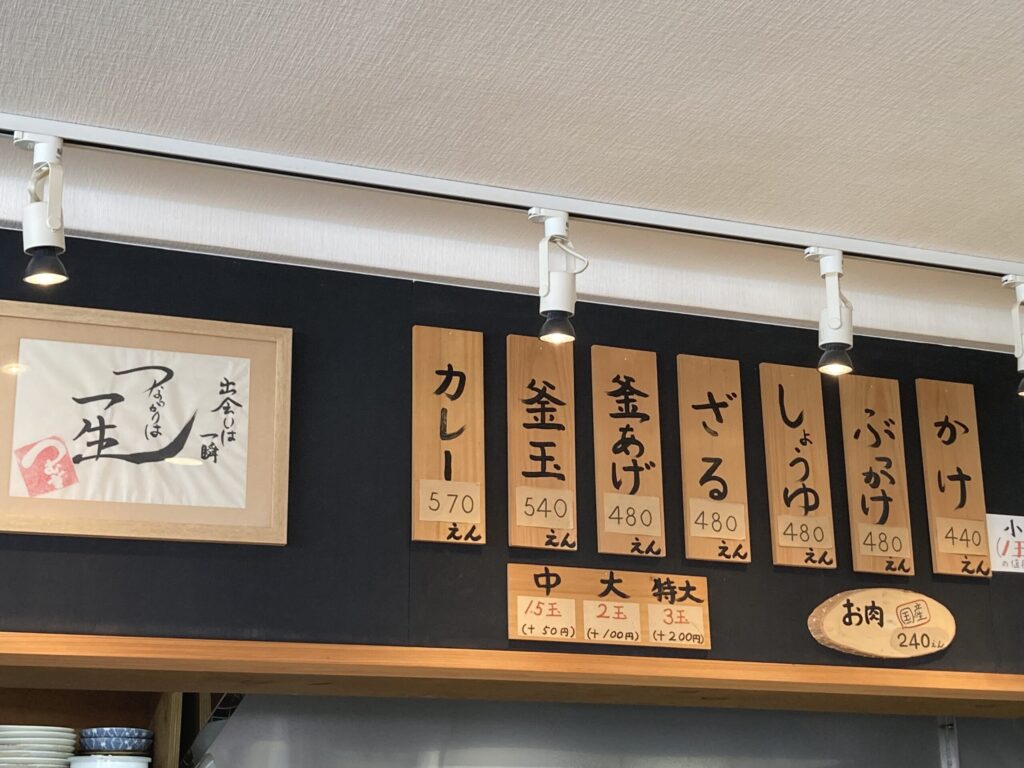 出会いは
一瞬
つながりは
一生
カレー
570
えん
釜玉
540
えん
釜あげ
480
えん
ざる
480
えん
しょうゆ
480
えん
ぶっかけ
480
えん
かけ
440
えん
小
(1玉
の値段
中
1.5玉
(+50円)
大
2玉
(+100円)
特大
3玉
(+200円)
お肉
国産
240えん